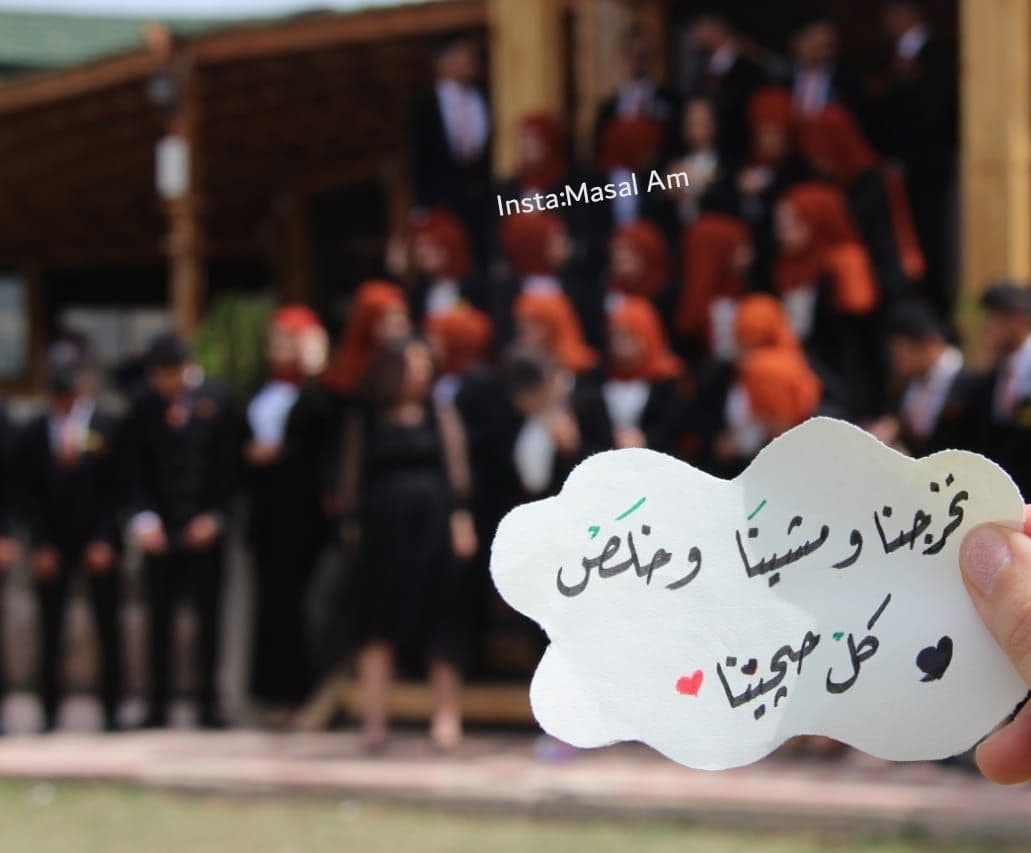 Insta:Masal Am
تخرجنا ومشينَا وخلَصْ
كلْ حچيينا